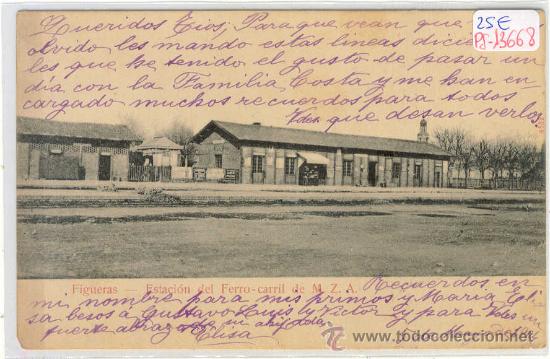 25€
PJ-13668
Queridos Tios; Para que vean que no
olvido les mando estas lineas diciendo
les que he tenido el gusto de pasar un
dia con la Familia Costa y me han en-
cargado muchos recuerdos para todos
Vdes que desan verlos
Figueras — Estación del Ferro-carril de M. Z. A.
Recuerdos en
mi nombre para mis primos y Maria Eli
sa besos a Gustavo Luis y Victor y para Vdes un
fuerte abrazo de su ahijada
Elisa
todocoleccion.net